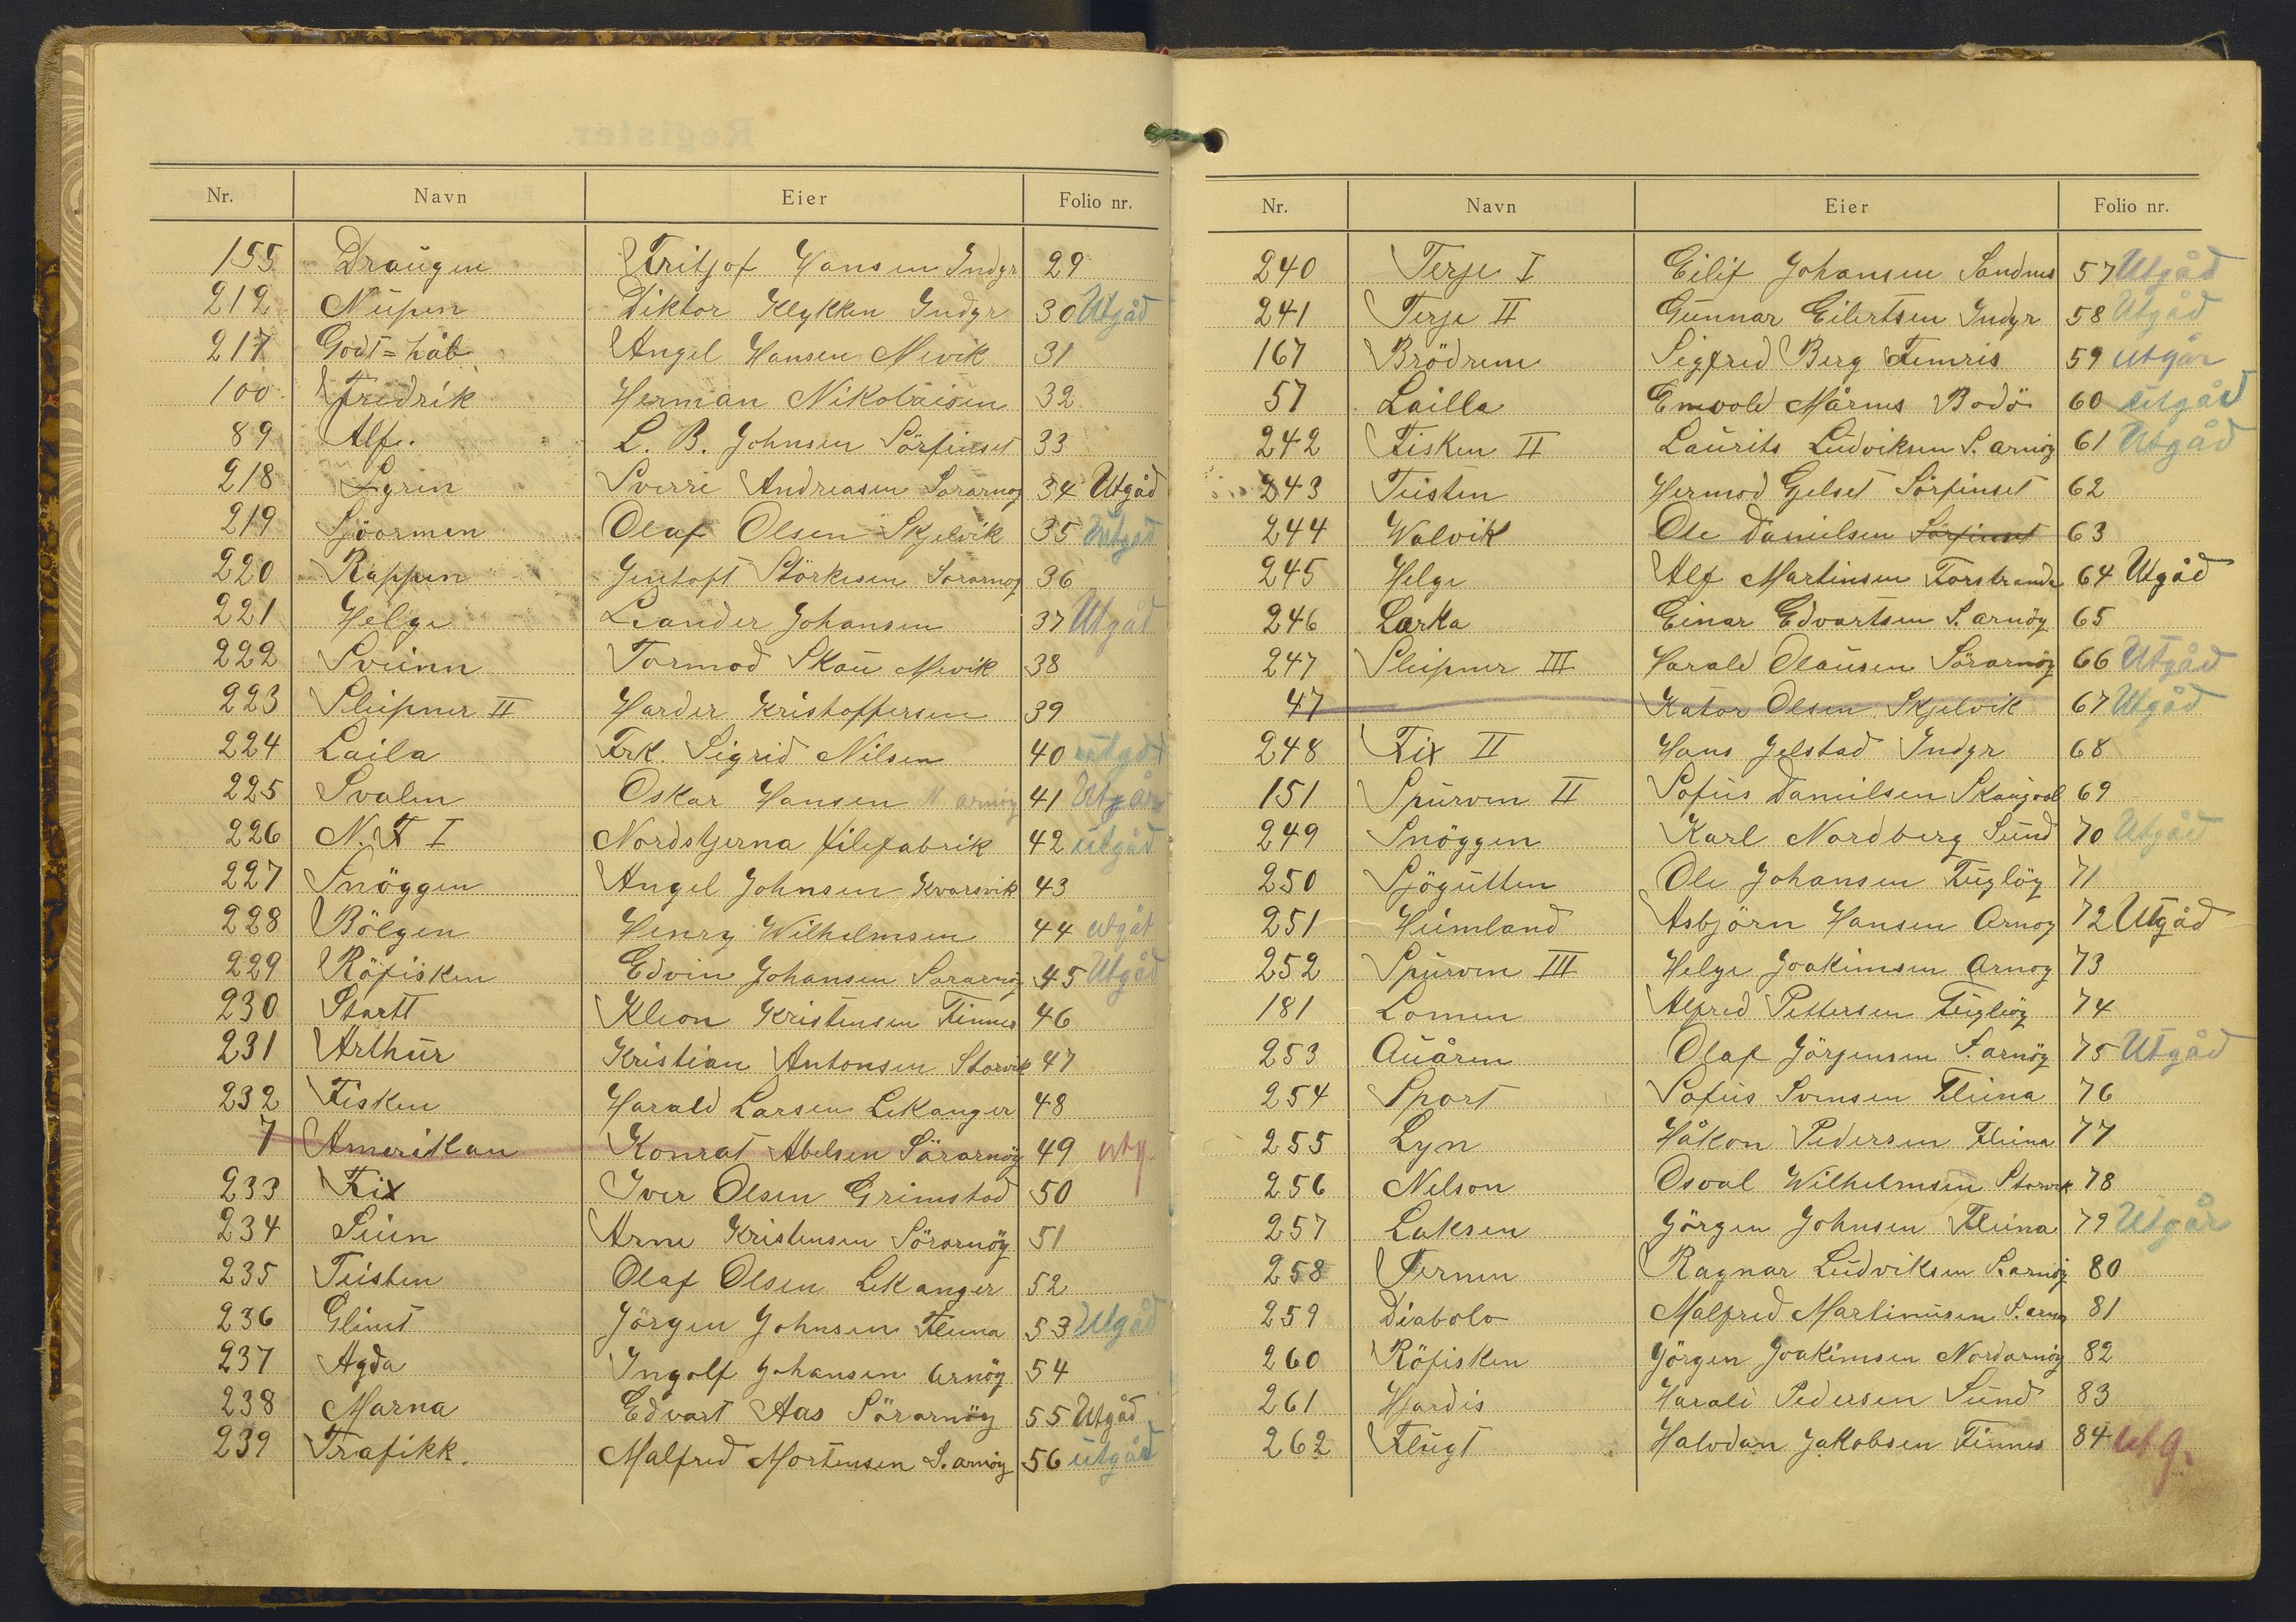 Nr. Navn Eier Folio nr.
155 Draugen Fritjof Hansen Indyr 29
212 Nupen Viktor Klykken Indyr 30 Utgåd
217 Godt=håb Angel Hansen Mevik 31
100 Fredrik Herman Nikolaisen 32
89 Alfe. L. B. Johnsen Sörfinset 33
218 Lyrin Sverre Andreasen Sörarnøy 34 Utgåd
219 Sjöormen Olaf Olsen Skjelvik 35 Utgåd
220 Rappen Gentoft Störkesen Sörarnøy 36
221 Helge Leander Johansen 37 Utgåd
222 Sveinn Tormod Skau Mevik 38
223 Sleipner II Harder Kristoffersen 39
224 Laila Frk. Sigrid Nilsen 40 utgåd
225 Svalen Oskar Hansen N. arnöy 41 Utgår
226 N. F I Nordstjerna filefabrik 42 utgåd
227 Snöggen Angel Johnsen Kvarsvik 43
228 Bölgen Henry Wilhelmsen 44 utgåt
229 Röfisken Edvin Johansen Sörarnöy 45 Utgåd
230 Startt Kleon Kristensen Finnes 46
231 Arthur Kristian Antonsen Storvik 47
232 Fisken Harald Larsen Lekanger 48
7 Amerikan Konrat Abelsen Sörarnöy 49 utg
233 Fix Iver Olsen Grimstad 50
234 Seien Arne Kristensen Sörarnöy 51
235 Teisten Olaf Olsen Lekanger 52
236 Glimt Jörgen Johnsen Fleina 53 Utgåd
237 Agda Ingolf Johansen Arnöy 54
238 Marna Edvart Aas Sörarnöy 55 Utgåd
239 Trafikk. Malfred Mortensen S. arnöy 56 utgåd
Nr. Navn Eier Folio nr.
240 Terje I Eilif Johansen Sandnes 57 Utgåd
241 Terje II Gunnar Eilertsen Indyr 58 Utgåd
167 Brödrene Sigfred Berg Femris 59 utgår
57 Lailla Mårnes Bodö 60 utgåd
242 Fisken II Laurits Ludviksen S. arnöy 61 Utgåd
243 Teisten Hermod Gjelset Sörfinset 62
244 Walvik Ole Danielsen Sörfinset 63
245 Helge Alf Martinsen Forstranda 64 Utgåd
246 Larka Einar Edvartsen S. arnöy 65
247 Sleipner III Harald Olausen Sörarnöy 66 Utgåd
47 Kator Olsen Skjelvik 67 Utgåd
248 Fix II Hans Jelstad Indyr 68
151 Spurven II Sofus Danielsen 69
249 Snöggen Karl Nordberg Sund 70 Utgåd
250 Sjögutten Ole Johansen Fugløy 71
251 Heimland Asbjörn Hansen Arnøy 72 Utgåd
252 Spurven III Helge Joakimsen Arnøy 73
181 Lomen Alfred Pettersen Fugleöy 74
253 Auåren Olaf Jörgensen S. arnöy 75 Utgåd
254 Sport Sofus Svensen Fleina 76
255 Lyn Håkon Pedersen Fleina 77
256 Nelson Osval Wilhelmsen Storvik 78
257 Laksen Jörgen Johnsen Fleina 79 Utgår
258 Ternen Ragnar Ludviksen S. arnöy 80
259 Diabolo Malfred Martinusen S. arnø 81
260 Röfisken Jörgen Joakimsen Nordarnöy 82
261 Hjördis Harald Pedersen Sund 83
262 Flugt Halvdan Jakobsen Finnes 84 utg.